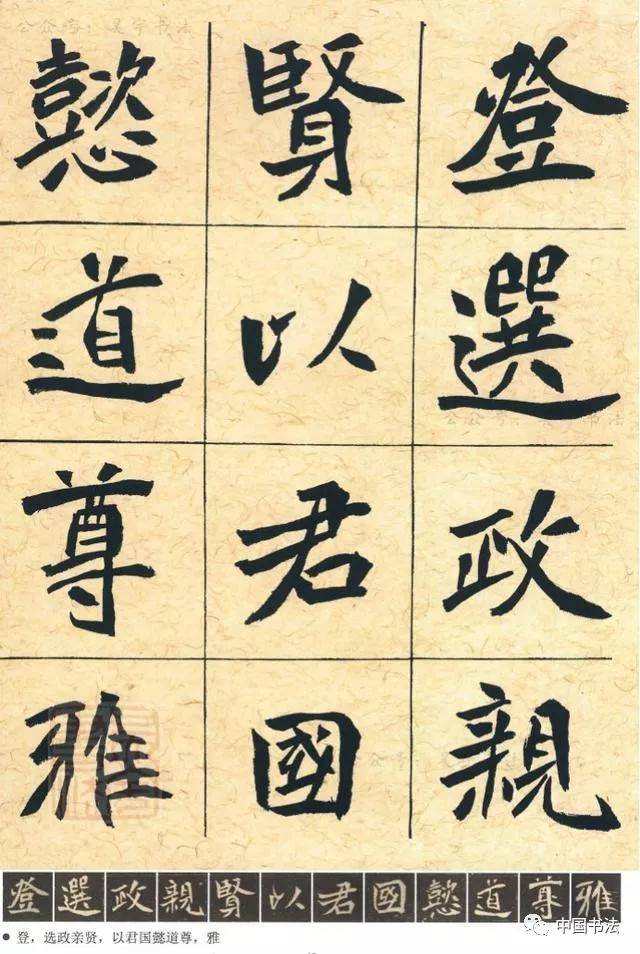 登選政親
賢以君國
懿道尊雅
登選政親賢以君國懿道尊雅
登，选政亲贤，以君国懿道尊，雅
中国书法